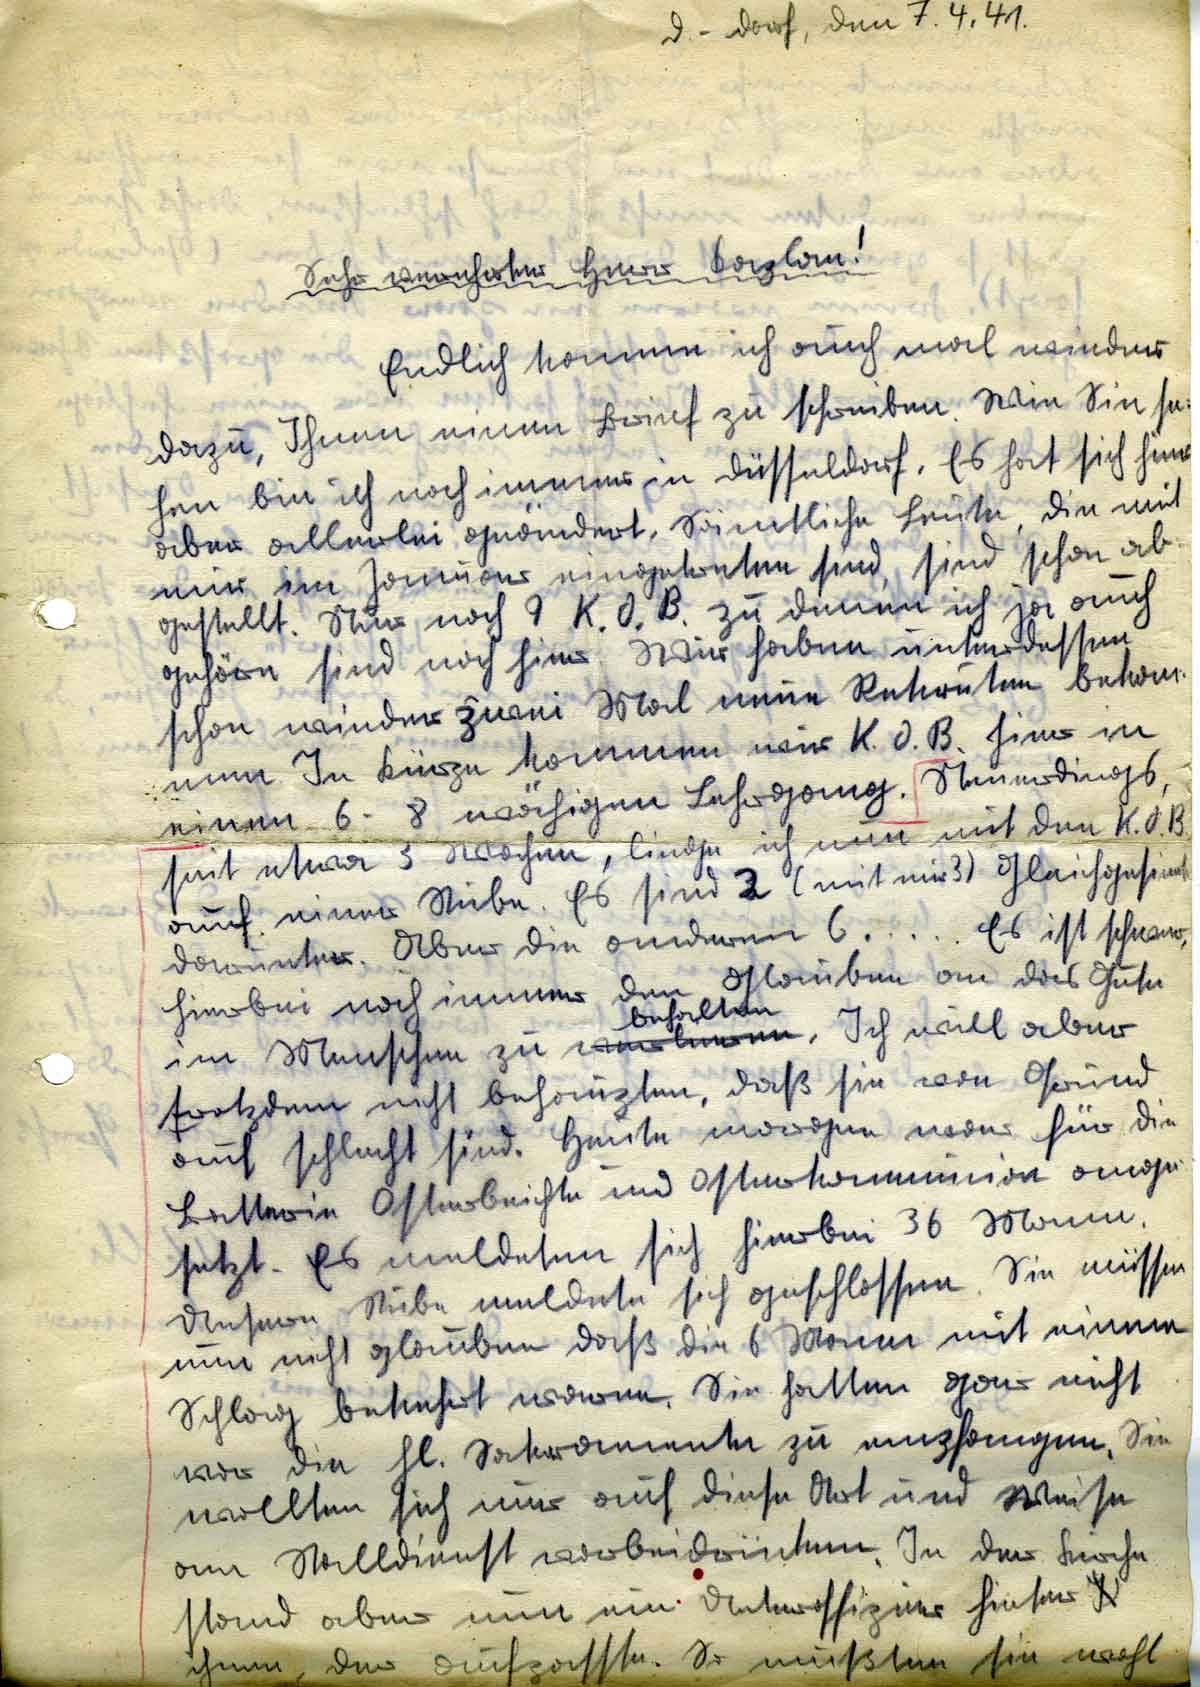 D.-dorf, den 7.4.41.
Sehr verehrter Herr Kaplan!
Endlich komme ich auch mal wieder
dazu, Ihnen einen Brief zu schreiben. Wie Sie se-
hen bin ich noch immer in Düsseldorf. Es hat sich hier
aber allerlei geändert. Sämtliche Leute, die mit
mir im Januar eingetreten sind, sind schon ab-
gestellt. Nur noch 9 K.O.B. zu denen ich ja auch
gehöre sind noch hier. Wir haben unterdessen
schon wieder zwei Mal neue Rekruten bekom-
men. In Kürze kommen wir K.O.B. hier in
einen 6-8 wöchigen Lehrgang. Neuerdings,
seit etwa 3 Wochen, liege ich nun mit den K.O.B.
auf einer Stube. Es sind 2 (mit mir 3) Gleichgesinnte
darunter. Aber die anderen 6..... Es ist schwer,
hierbei noch immer den Glauben an das Gute
im Menschen zu verlieren behalten. Ich will aber
trotzdem nicht behaupten, daß sie von Grund
auf schlecht sind. Heute morgen war für die
Batterie Osterbeichte und Osterkommunion ange-
setzt. Es meldeten sich hierbei 36 Mann.
Unsere Stube meldete sich geschlossen. Sie müssen
nun nicht glauben daß die 6 Mann mit einem
Schlag bekehrt waren. Sie hatten gar nicht
vor die hl. Sakramente zu empfangen. Sie
wollten sich nur auf diese Art und Weise
am Stalldienst vorbeidrücken. In der Kirche
stand aber nun ein Unteroffizier hinter
ihnen, der aufpasste. So mußten sie wohl